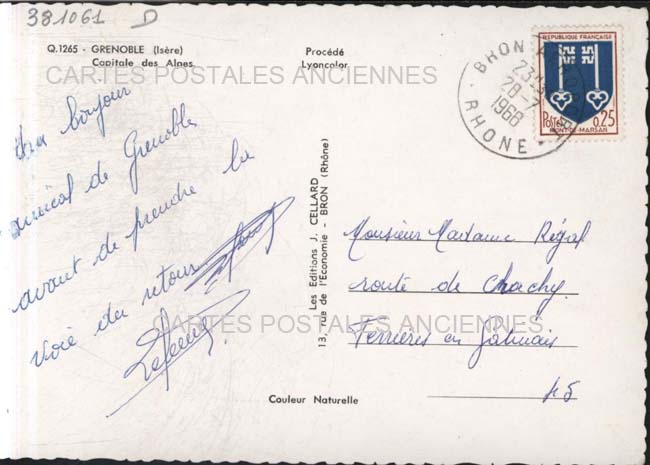 381061 D
Q.1265 - GRENOBLE (Isère)
Capitale des Alpes
Procédé
Lyoncolor
CARTES POSTALES ANCIENNES
BRON
23H
28-7
1968
RHONE
REPUBLIQUE FRANÇAISE
POSTES 0,25
MONT-DE-MARSAN
bonjour
amical de Grenoble
avant de prendre la
voie du retour
Les Editions J. CELLARD
13, rue de l'Economie - BRON (Rhône)
Monsieur Madame Régal
route de Chachy.
Ferrières en Gâtinais
45
CARTES POSTALES ANCIENNES
Couleur Naturelle